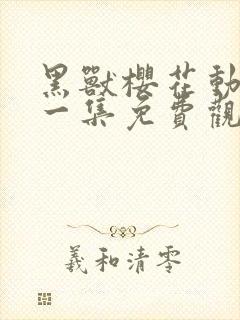 黑獸櫻花動
一集免費觀
羲和清零